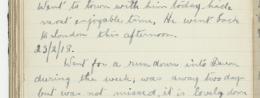 Went to town with him today. had a
most enjoyable time. He went back
to London this afternoon.
23/2/18.
Went for a run down into
during the week, was away two days
but was not missed, it is lovely down